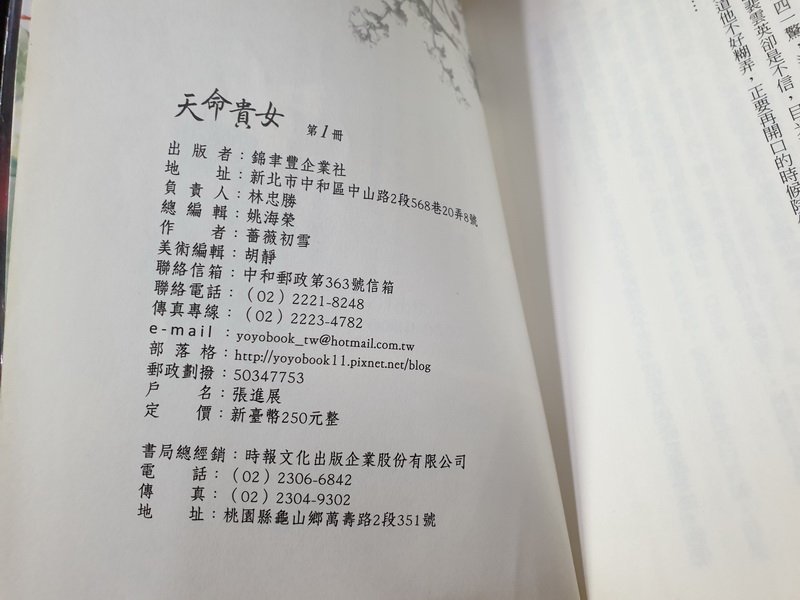 天命貴女 第1冊
出版者：錦聿豐企業社
地址：新北市中和區中山路2段568巷20弄8號
負責人：林忠勝
總編輯：姚海榮
作者：薔薇初雪
美術編輯：胡靜
聯絡信箱：中和郵政第363號信箱
聯絡電話：（02）2221-8248
傳真專線：（02）2223-4782
e-mail：yoyobook_tw@hotmail.com.tw
部落格：http://yoyobook11.pixnet.net/blog
郵政劃撥：50347753
戶名：張進展
定價：新臺幣250元整
書局總經銷：時報文化出版企業股份有限公司
電話：（02）2306-6842
傳真：（02）2304-9302
地址：桃園縣龜山鄉萬壽路2段351號
裴雲英卻是不信，
道他不好糊弄，正要再開口的時候